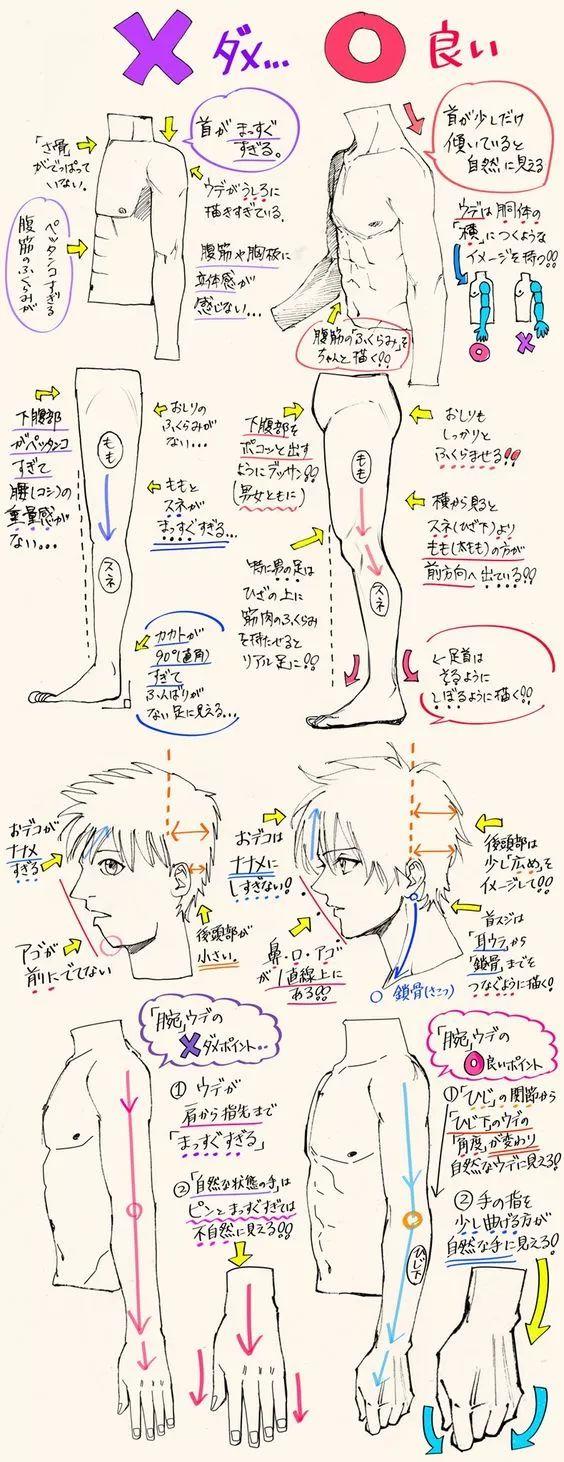 ダメ…
良い
「さ骨」
がでっぱって
いない。
首がまっすぐ
すぎる。
ウデがうしろに
描きすぎている。
腹筋のふくらみが
ペッタンコすぎる
腹筋や胸板に
立体感が
感じない…
首が少しだけ
傾いていると
自然に見える
ウデは胴体の
「横」につくような
イメージを持つ!!
腹筋の「ふくらみ」を
ちゃんと描く!!
下腹部
がペッタンコ
すぎて
腰(コシ)の
重量感が
ない…
おしりの
ふくらみが
ない…
もも
ももと
スネが
まっすぐすぎる…
スネ
カカトが
90°(直角)
すぎて
ふんばりが
ない足に見える…
下腹部を
ポコンと出す
ようにデッサン!!
(男女ともに)
おしりも
しっかりと
ふくらませる!!
もも
横から見ると
スネ(ひざ下)より
もも(太もも)の方が
前方向へ出ている!!
特に男の足は
ひざの上に
筋肉のふくらみ
を持たせると
リアル足に!!
スネ
←足首は
そるように
しぼるように描く!!
おデコが
ナナメ
すぎる
アゴが
前にでてない
後頭部が
小さい。
おデコは
ナナメに
しすぎない!
鼻・口・アゴ
が1直線上に
ある!!
後頭部は
少し「広め」を
イメージして!!
首スジは
「耳ウラ」から
「鎖骨」までを
つなぐように描く!
鎖骨(さこつ)
「腕」ウデの
ダメポイント..
① ウデが
肩から指先まで
「まっすぐすぎる」
②「自然な状態の手」は
ピンとまっすぐすぎては
不自然に見える!!
「腕」ウデの
良いポイント
①「ひじ」の関節から
「ひじ下」のウデの
「角度」が変わり
自然なウデに見える!
ひじ下
② 手の指を
少し曲げる方が
自然な手に見える!